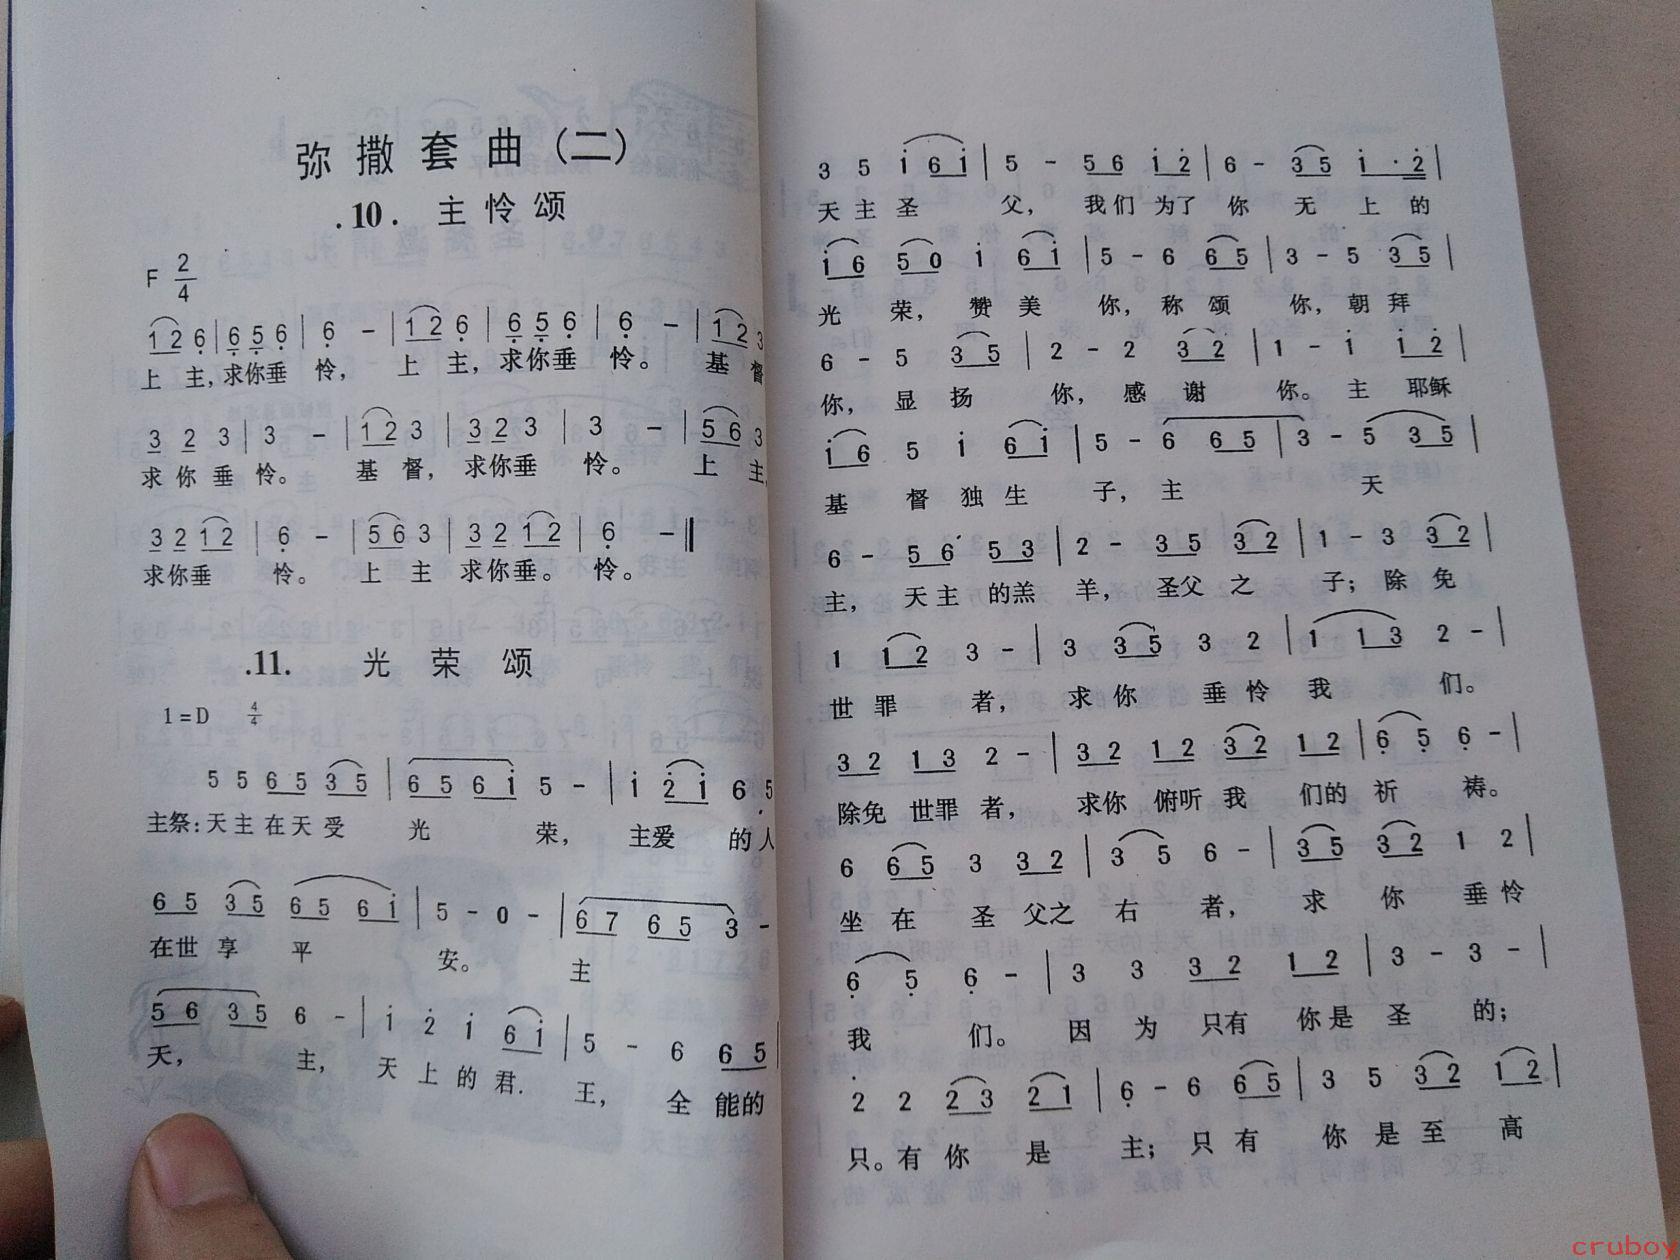 弥撒套曲（二）
.10. 主怜颂
F 2/4
1 2 6 | 6 5 6 | 6 – | 1 2 6 | 6 5 6 | 6 – | 1 2 3
上 主，求你垂 怜， 上 主，求你垂 怜。 基 督
3 2 3 | 3 – | 1 2 3 | 3 2 3 | 3 – | 5 6 3
求 你 垂 怜。 基 督，求你垂 怜。 上 主，
3 2 1 2 | 6 – | 5 6 3 | 3 2 1 2 | 6 –‖
求你垂 怜。 上 主 求你垂。怜。
.11. 光荣颂
1=D 4/4
5 5 6 5 3 5 | 6 5 6 i 5 – | i 2 i 6 5
主祭：天主在天受 光 荣， 主爱 的人
6 5 3 5 6 5 6 i | 5 – 0 – | 6 7 6 5 3 –
在世 享 平 安。 主
5 6 3 5 6 – | i 2 i 6 i | 5 – 6 6 5
天， 主， 天 上 的 君. 王， 全 能的
3 5 i 6 i | 5 – 5 6 i 2 | 6 – 3 5 i · 2 |
天 主 圣 父， 我们 为了 你 无 上 的
i 6 5 0 i 6 i | 5 – 6 6 5 | 3 – 5 3 5 |
光 荣， 赞 美 你，称 颂 你，朝 拜
6 – 5 3 5 | 2 – 2 3 2 | 1 – i 1 2 |
你， 显 扬 你，感 谢 你。主 耶稣
i 6 5 i 6 i | 5 – 6 6 5 | 3 – 5 3 5 |
基 督 独 生 子，主 天
6 – 5 6 5 3 | 2 – 3 5 3 2 | 1 – 3 3 2 |
主， 天 主 的羔 羊， 圣父 之 子；除 免
1 1 2 3 – | 3 3 5 3 2 | 1 1 3 2 – |
世 罪 者， 求 你 垂 怜 我 们。
3 2 1 3 2 – | 3 2 1 2 3 2 1 2 | 6 5 6 – |
除免 世罪 者， 求你 俯听 我 们的 祈 祷。
6 6 5 3 3 2 | 3 5 6 – | 3 5 3 2 1 2 |
坐 在 圣 父之 右 者， 求 你 垂 怜
6 5 6 – | 3 3 3 2 1 2 | 3 – 3 – |
我 们。 因 为 只有 你是 圣 的；
2 2 2 3 2 1 | 6 – 6 6 5 | 3 5 3 2 1 2 |
只。有 你 是 主；只 有 你 是 至 高
cruboy